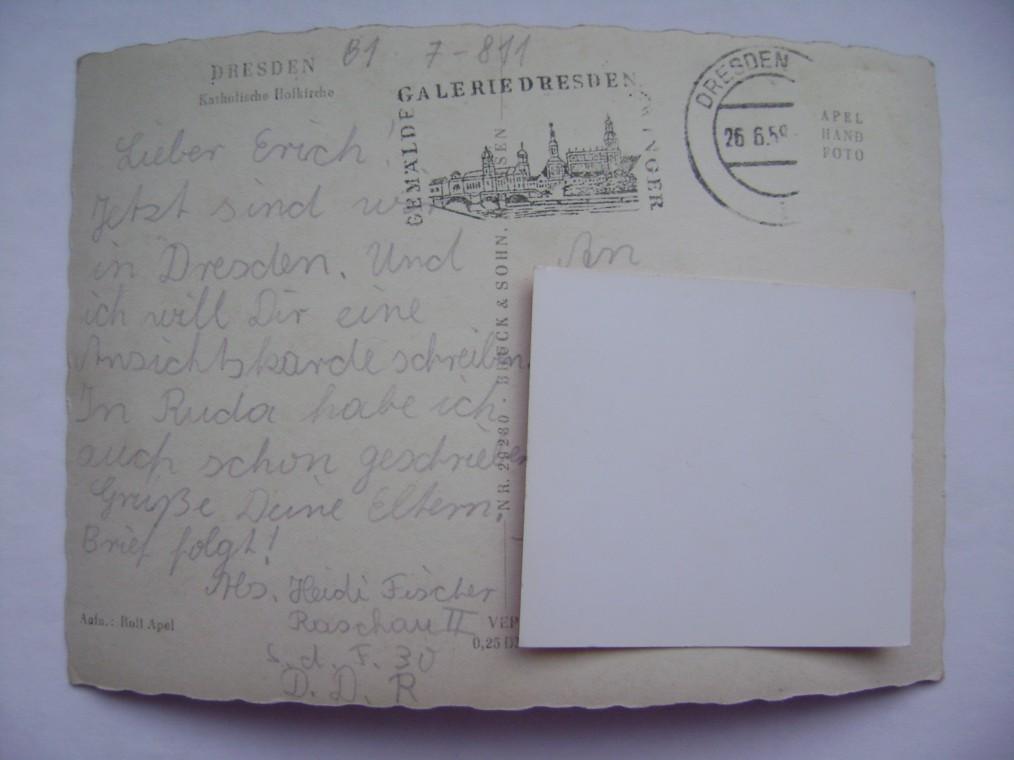 DRESDEN
Katholische Hofkirche
B1 7-811
GEMÄLDE
GALERIE DRESDEN
DRESDEN
26 6.59
APEL
HAND
FOTO
Lieber Erich!
Jetzt sind wir
in Dresden. Und
ich will Dir eine
Ansichtskarde schreiben.
In Ruda habe ich
auch schon geschrieben
Grüße Deine Eltern.
Brief folgt!
Abs. Heidi Fischer
Raschau II
F. 30
D. D. R
An
NR. 29280 · BRÜCK & SOHN,
Aufn.: Rolf Apel